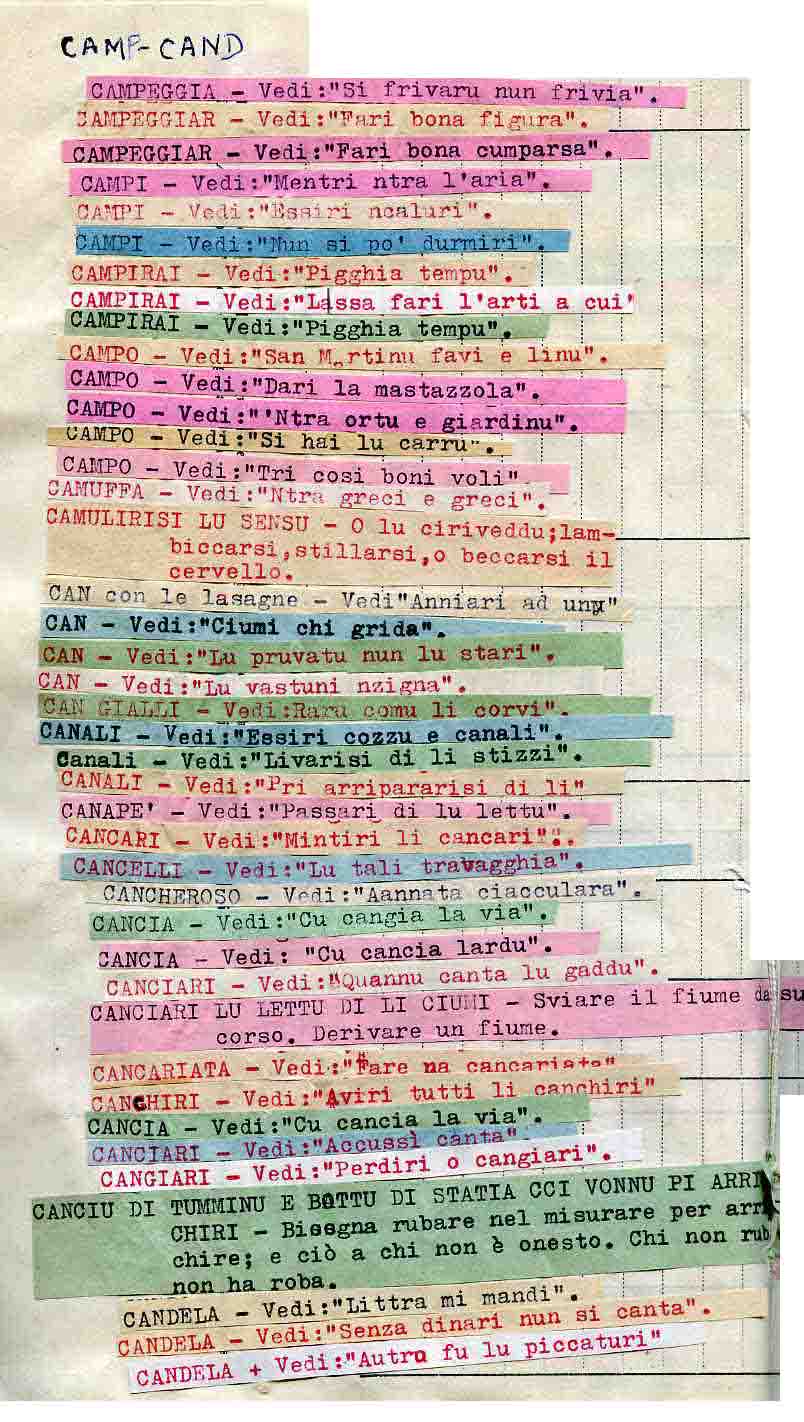 CAMP-CAND
CAMPEGGIA - Vedi:"Si frivaru nun frivia".
CAMPEGGIAR - Vedi:"Fari bona figura".
CAMPEGGIAR - Vedi:"Fari bona cumparsa".
CAMPI - Vedi:"Mentri ntra l'aria".
CAMPI - Vedi:"Essiri ncaluri".
CAMPI - Vedi:"Nun si po' durmiri".
CAMPIRAI - Vedi:"Pigghia tempu".
CAMPIRAI - Vedi:"Lassa fari l'arti a cui'
CAMPIRAI - Vedi:"Pigghia tempu".
CAMPO - Vedi:"San Martinu favi e linu".
CAMPO - Vedi:"Dari la mastazzola".
CAMPO - Vedi:"'Ntra ortu e giardinu".
CAMPO - Vedi:"Si hai lu carru".
CAMPO - Vedi:"Tri cosi boni voli"
CAMUFFA - Vedi:"Ntra greci e greci".
CAMULIRISI LU SENSU - O lu ciriveddu;lam-
biccarsi,stillarsi,o beccarsi il
cervello.
CAN con le lasagne - Vedi"Anniari ad unu"
CAN - Vedi:"Ciumi chi grida".
CAN - Vedi:"Lu pruvatu nun lu stari".
CAN - Vedi:"Lu vastuni nzigna".
CAN GIALLI - Vedi:Raru comu li corvi".
CANALI - Vedi:"Essiri cozzu e canali".
Canali - Vedi:"Livarisi di li stizzi".
CANALI - Vedi:"Pri arripararisi di li"
CANAPE' - Vedi:"Passari di lu lettu".
CANCARI - Vedi:"Mintiri li cancari"".
CANCELLI - Vedi:"Lu tali travagghia".
CANCHEROSO - Vedi:"Aannata ciacculara".
CANCIA - Vedi:"Cu cangia la via".
CANCIA - Vedi: "Cu cancia lardu".
CANCIARI - Vedi:"Quannu canta lu gaddu".
CANCIARI LU LETTU DI LI CIUMI - Sviare il fiume da su
corso. Derivare un fiume.
CANCARIATA - Vedi:"Fare na cancariata"
CANCHIRI - Vedi:"Aviri tutti li canchiri"
CANCIA - Vedi:"Cu cancia la via".
CANCIARI - Vedi:"Accussì canta"
CANGIARI - Vedi:"Perdiri o cangiari".
CANCIU DI TUMMINU E BOTTU DI STATIA CCI VONNU PI ARRI
CHIRI - Bisogna rubare nel misurare per arr
chire; e ciò a chi non è onesto. Chi non rub
non ha roba.
CANDELA - Vedi:"Littra mi mandi".
CANDELA - Vedi:"Senza dinari nun si canta".
CANDELA + Vedi:"Autru fu lu piccaturi"